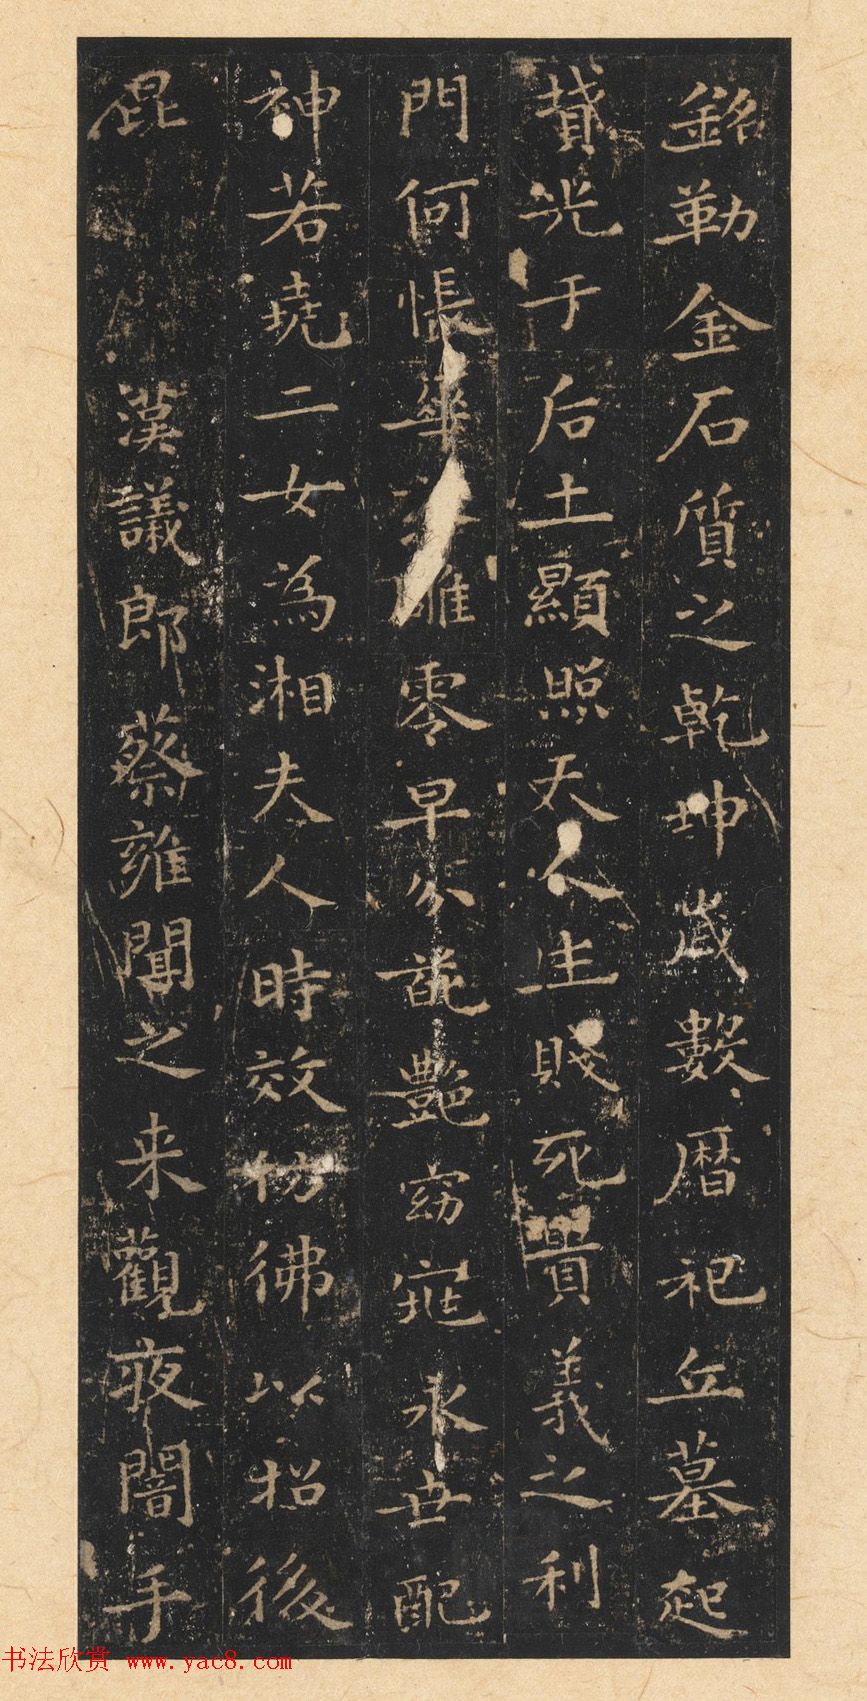 銘勒金石質之乾坤歲數暦祀丘墓起
墳光于后土顯照天人生賤死貴義之利
門何悵華雕零早分葩艷窈窕永世配
神若堯二女為湘夫人時效彷彿以招後
昆 漢議郎蔡雍聞之来觀夜闇手
书法欣赏 www.yac8.com